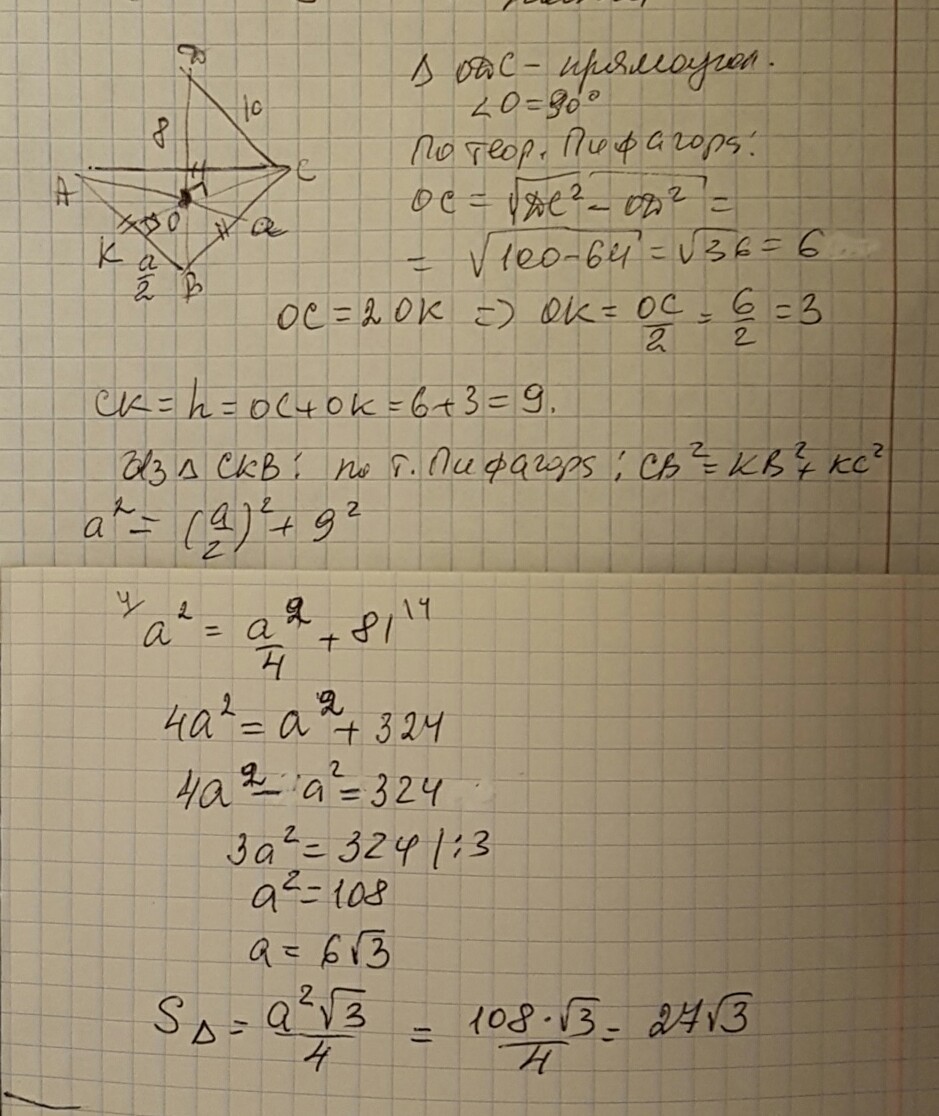 D
8
10
A
C
O
K
a
a/2
B
Δ ODC – прямоугол.
∠O = 90°
По теор. Пифагора:
OC = √(DC² – OD²) =
= √(100–64) = √36 = 6
OC = 2OK ⇒ OK = OC/2 = 6/2 = 3
CK = h = OC + OK = 6 + 3 = 9.
Из Δ CKB: по т. Пифагора: CB² = KB² + KC²
a² = (a/2)² + 9²
4/ a² = a²/4 + 81 \4
4a² = a² + 324
4a² – a² = 324
3a² = 324 | :3
a² = 108
a = 6√3
S Δ = a²√3/4 = 108·√3/4 = 27√3